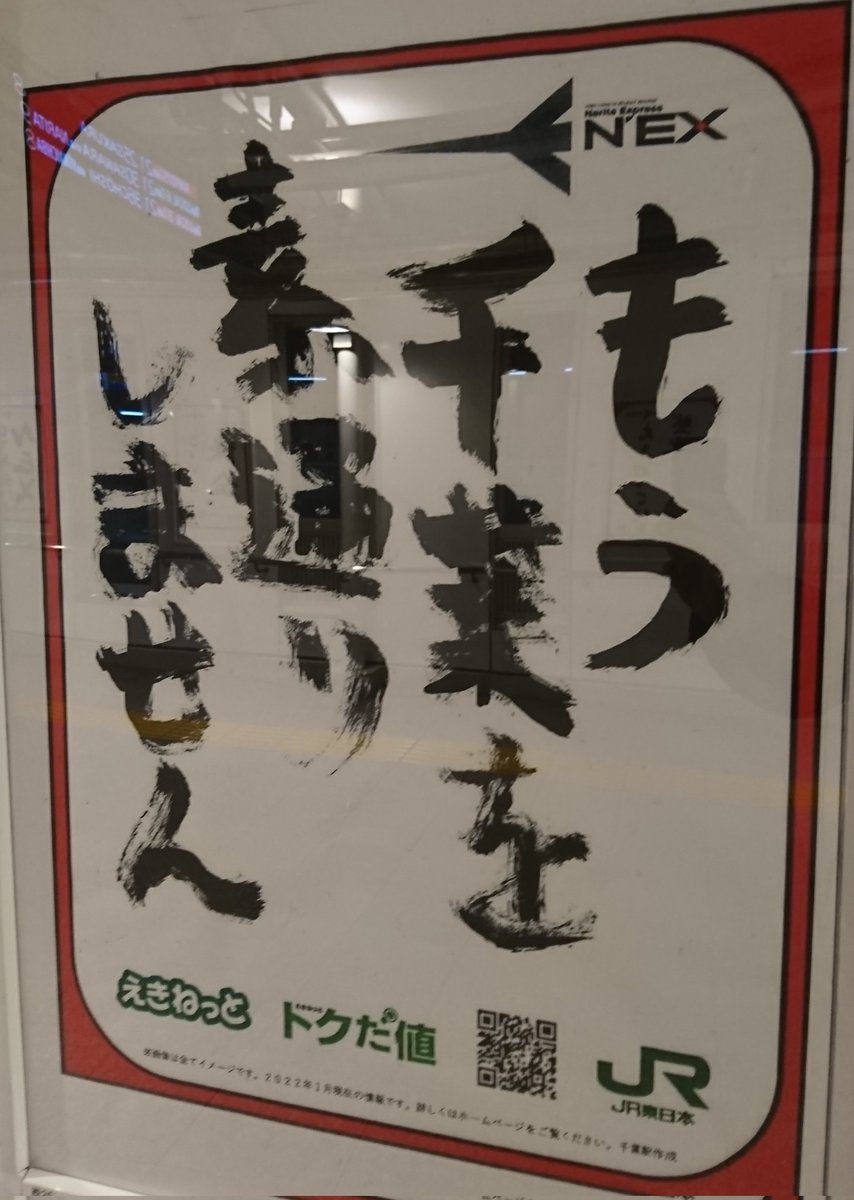 Narita Express
N'EX
もう
千葉を
素通り
しません
えきねっと
トクだ値
JR
JR東日本
※画像は全てイメージです。2022年1月現在の情報です。詳しくはホームページをご覧ください。千葉駅作成